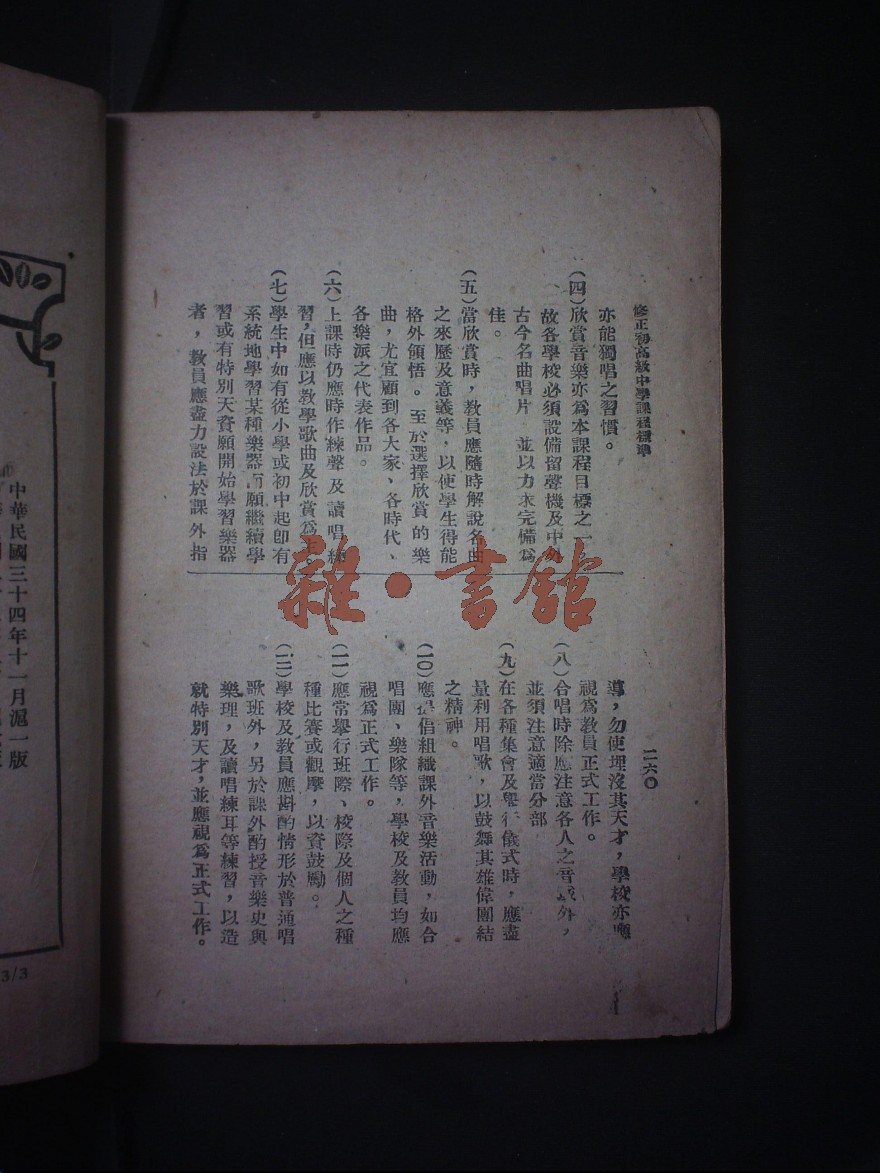 修正初高級中學課程標準
二六〇
亦能獨唱之習慣。
(四)欣賞音樂亦爲本課程目標之一,
故各學校必須設備留聲機及中外
古今名曲唱片 並以力求完備爲
佳。
(五)當欣賞時,教員應隨時解說名曲
之來歷及意義等,以使學生得能
格外領悟。至於選擇欣賞的樂
曲,尤宜顧到各大家、各時代、
各樂派之代表作品。
(六)上課時仍應時作練聲及讀唱練
習,但應以教學歌曲及欣賞爲主
(七)學生中如有從小學或初中起卽有
系統地學習某種樂器而願繼續學
習或有特別天資願開始學習樂器
者,教員應盡力設法於課外指
導,勿使埋沒其天才,學校亦應
視爲教員正式工作。
(八)合唱時除應注意各人之音域外,
並須注意適當分部
(九)在各種集會及舉行儀式時,應盡
量利用唱歌,以鼓舞其雄偉團結
之精神。
(10)應提倡組織課外音樂活動,如合
唱團、樂隊等,學校及教員均應
視爲正式工作。
(11)應常舉行班際、校際及個人之種
種比賽或觀摩,以資鼓勵。
(12)學校及教員應斟酌情形於普通唱
歌班外,另於課外酌授音樂史與
樂理,及讀唱練耳等練習,以造
就特別天才,並應視爲正式工作。
中華民國三十四年十一月滬一版
3/3
雜·書館